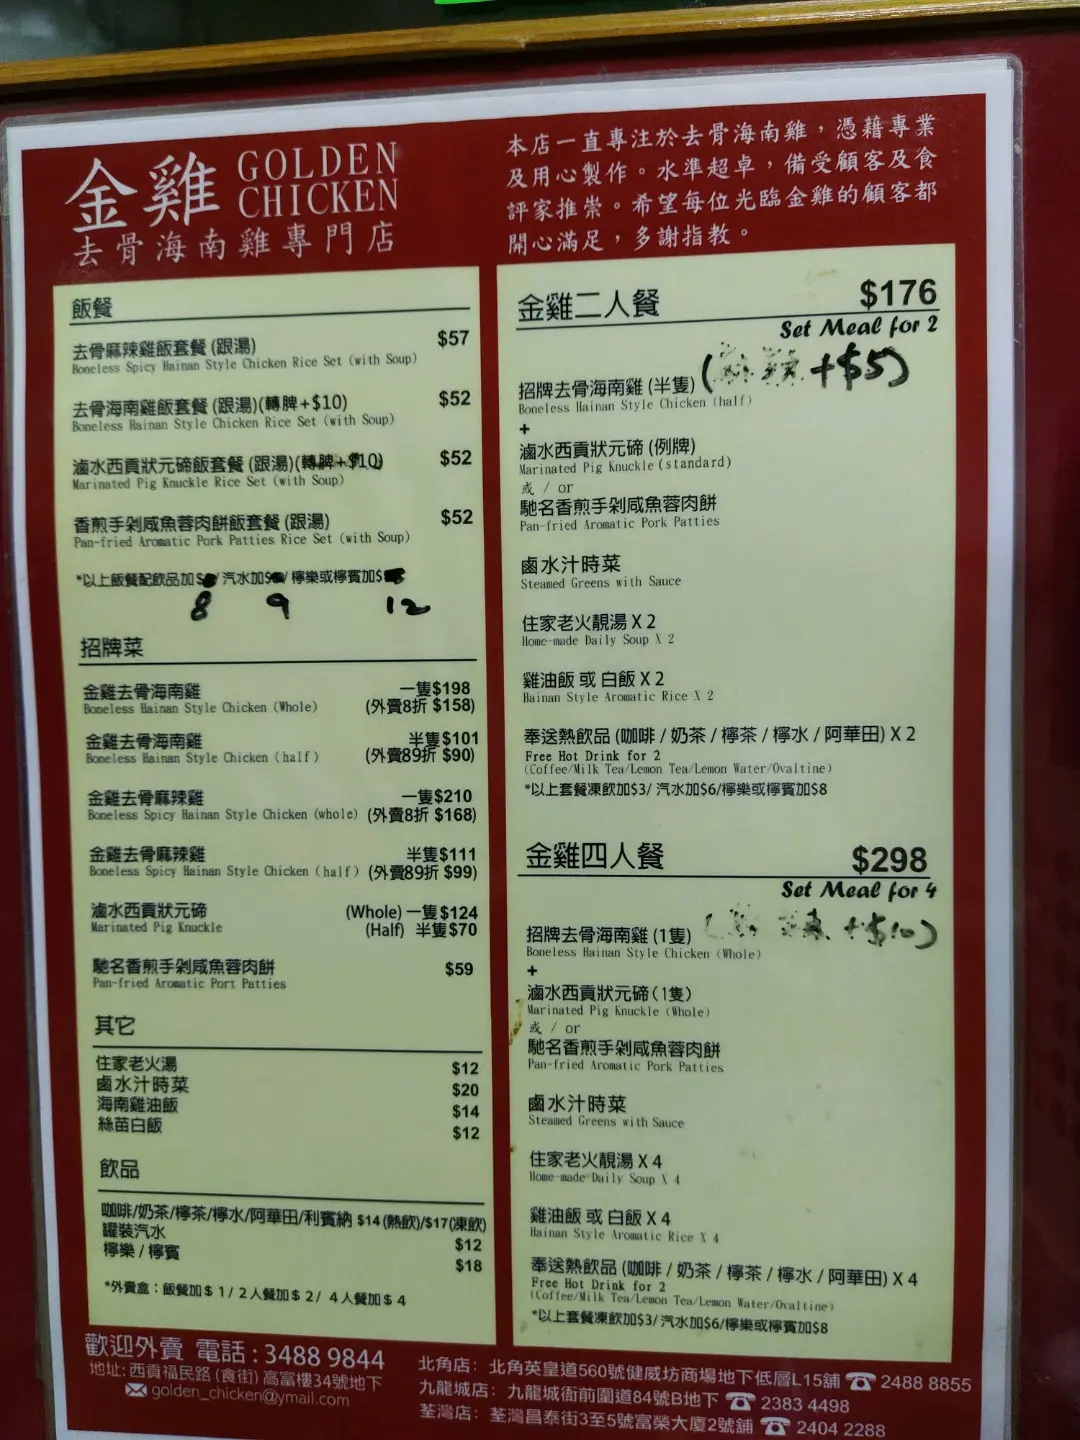 金雞 GOLDEN CHICKEN
去骨海南雞專門店
本店一直專注於去骨海南雞，憑藉專業
及用心製作。水準超卓，備受顧客及食
評家推崇。希望每位光臨金雞的顧客都
開心滿足，多謝指教。
飯餐
去骨麻辣雞飯套餐 (跟湯) $57
Boneless Spicy Hainan Style Chicken Rice Set (with Soup)
去骨海南雞飯套餐 (跟湯)(轉髀+$10) $52
Boneless Hainan Style Chicken Rice Set (with Soup)
滷水西貢狀元蹄飯套餐 (跟湯)(轉髀+$10) $52
Marinated Pig Knuckle Rice Set (with Soup)
香煎手剁咸魚蓉肉餅飯套餐 (跟湯) $52
Pan-fried Aromatic Pork Patties Rice Set (with Soup)
*以上飯餐配飲品加$ / 汽水加$ / 檸樂或檸賓加$
8 9 12
招牌菜
金雞去骨海南雞 一隻$198
Boneless Hainan Style Chicken (Whole) (外賣8折 $158)
金雞去骨海南雞 半隻$101
Boneless Hainan Style Chicken (half) (外賣89折 $90)
金雞去骨麻辣雞 一隻$210
Boneless Spicy Hainan Style Chicken (whole) (外賣8折 $168)
金雞去骨麻辣雞 半隻$111
Boneless Spicy Hainan Style Chicken (half) (外賣89折 $99)
滷水西貢狀元蹄 (Whole) 一隻$124
Marinated Pig Knuckle (Half) 半隻$70
馳名香煎手剁咸魚蓉肉餅 $59
Pan-fried Aromatic Port Patties
其它
住家老火湯 $12
鹵水汁時菜 $20
海南雞油飯 $14
絲苗白飯 $12
飲品
咖啡/奶茶/檸茶/檸水/阿華田/利賓納 $14 (熱飲)/$17(凍飲)
罐裝汽水 $12
檸樂 / 檸賓 $18
*外賣盒：飯餐加＄1/ 2人餐加＄2/ 4人餐加＄4
金雞二人餐 $176
Set Meal for 2
招牌去骨海南雞 (半隻) (麻辣+$5)
Boneless Hainan Style Chicken (half)
+
滷水西貢狀元蹄 (例牌)
Marinated Pig Knuckle (standard)
或 / or
馳名香煎手剁咸魚蓉肉餅
Pan-fried Aromatic Pork Patties
鹵水汁時菜
Steamed Greens with Sauce
住家老火靚湯 X 2
Home-made Daily Soup X 2
雞油飯 或 白飯 X 2
Hainan Style Aromatic Rice X 2
奉送熱飲品 (咖啡 / 奶茶 / 檸茶 / 檸水 / 阿華田) X 2
Free Hot Drink for 2
(Coffee/Milk Tea/Lemon Tea/Lemon Water/Ovaltine)
*以上套餐凍飲加$3/ 汽水加$6/檸樂或檸賓加$8
金雞四人餐 $298
Set Meal for 4
招牌去骨海南雞 (1隻) (麻辣+$10)
Boneless Hainan Style Chicken (Whole)
+
滷水西貢狀元蹄 (1隻)
Marinated Pig Knuckle (Whole)
或 / or
馳名香煎手剁咸魚蓉肉餅
Pan-fried Aromatic Pork Patties
鹵水汁時菜
Steamed Greens with Sauce
住家老火靚湯 X 4
Home-made Daily Soup X 4
雞油飯 或 白飯 X 4
Hainan Style Aromatic Rice X 4
奉送熱飲品 (咖啡 / 奶茶 / 檸茶 / 檸水 / 阿華田) X 4
Free Hot Drink for 2
(Coffee/Milk Tea/Lemon Tea/Lemon Water/Ovaltine)
*以上套餐凍飲加$3/ 汽水加$6/檸樂或檸賓加$8
歡迎外賣 電話 : 3488 9844
地址: 西貢福民路 (食街) 高富樓34號地下
golden_chicken@ymail.com
北角店： 北角英皇道560號健威坊商場地下低層L15舖 2488 8855
九龍城店： 九龍城衙前圍道84號B地下 2383 4498
荃灣店： 荃灣昌泰街3至5號富榮大廈2號舖 2404 2288